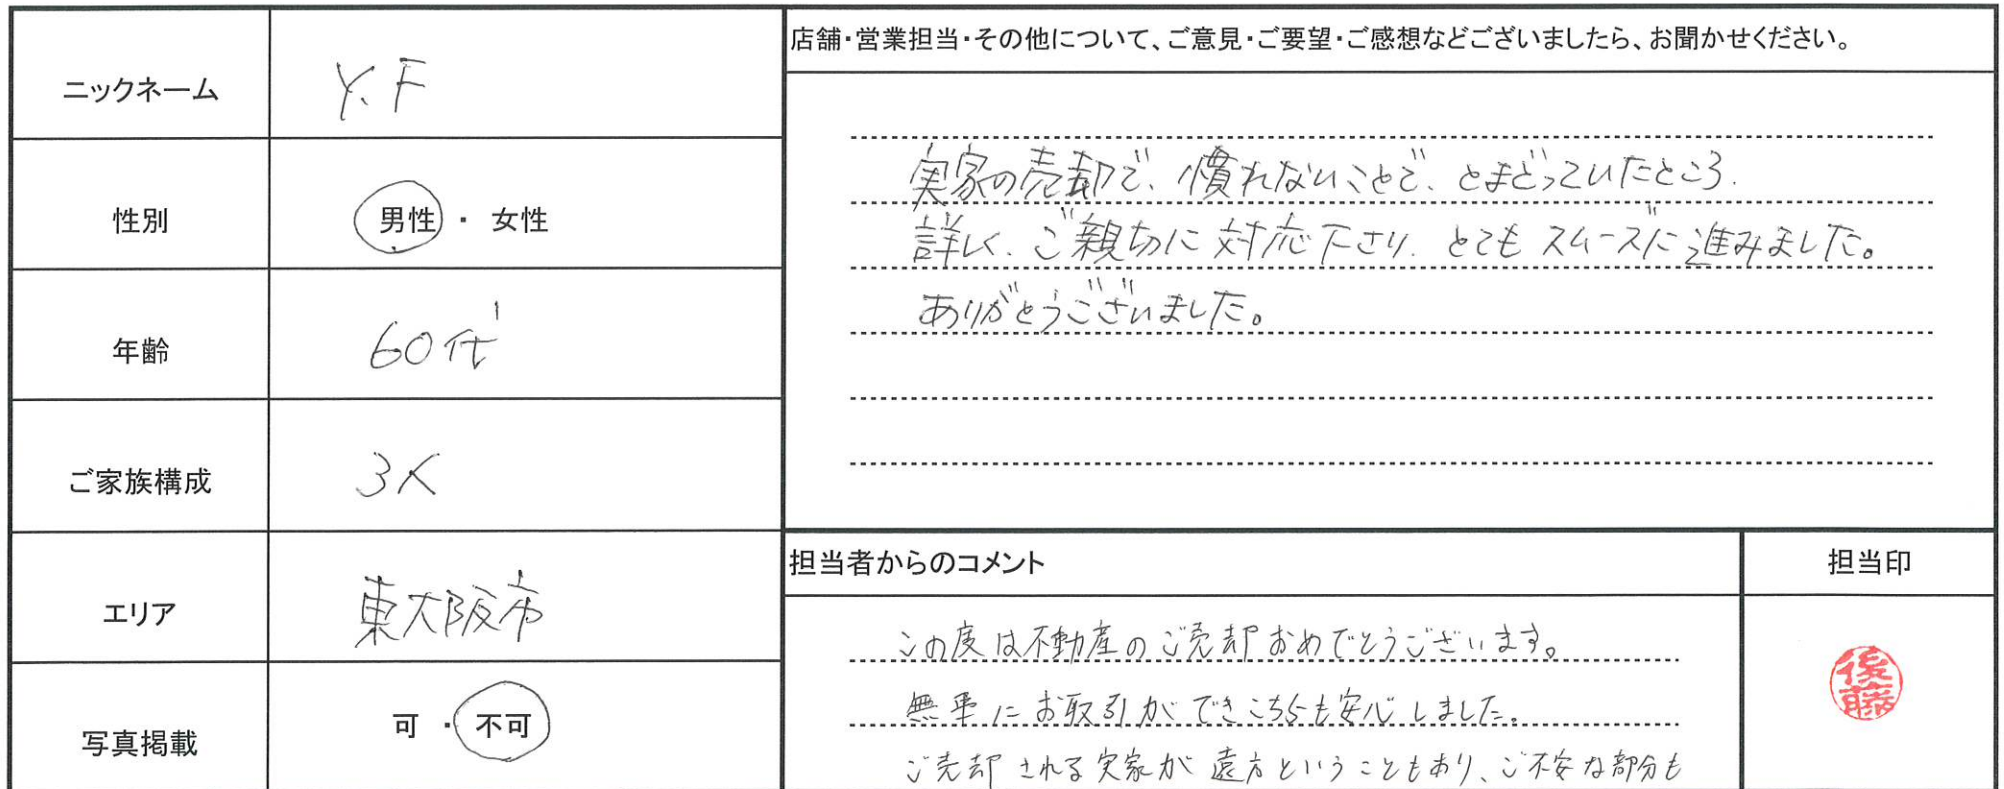 ニックネーム
Y.F
性別
男性 ・ 女性
年齢
60代
ご家族構成
3人
エリア
東大阪市
写真掲載
可 ・ 不可
店舗・営業担当・その他について、ご意見・ご要望・ご感想などございましたら、お聞かせください。
実家の売却で、慣れないことで、とまどっていたところ、
詳しく、ご親切に対応下さり、とてもスムーズに進みました。
ありがとうございました。
担当者からのコメント
この度は不動産のご売却おめでとうございます。
無事にお取引ができこちらも安心しました。
ご売却される実家が遠方ということもあり、ご不安な部分も
担当印
後藤